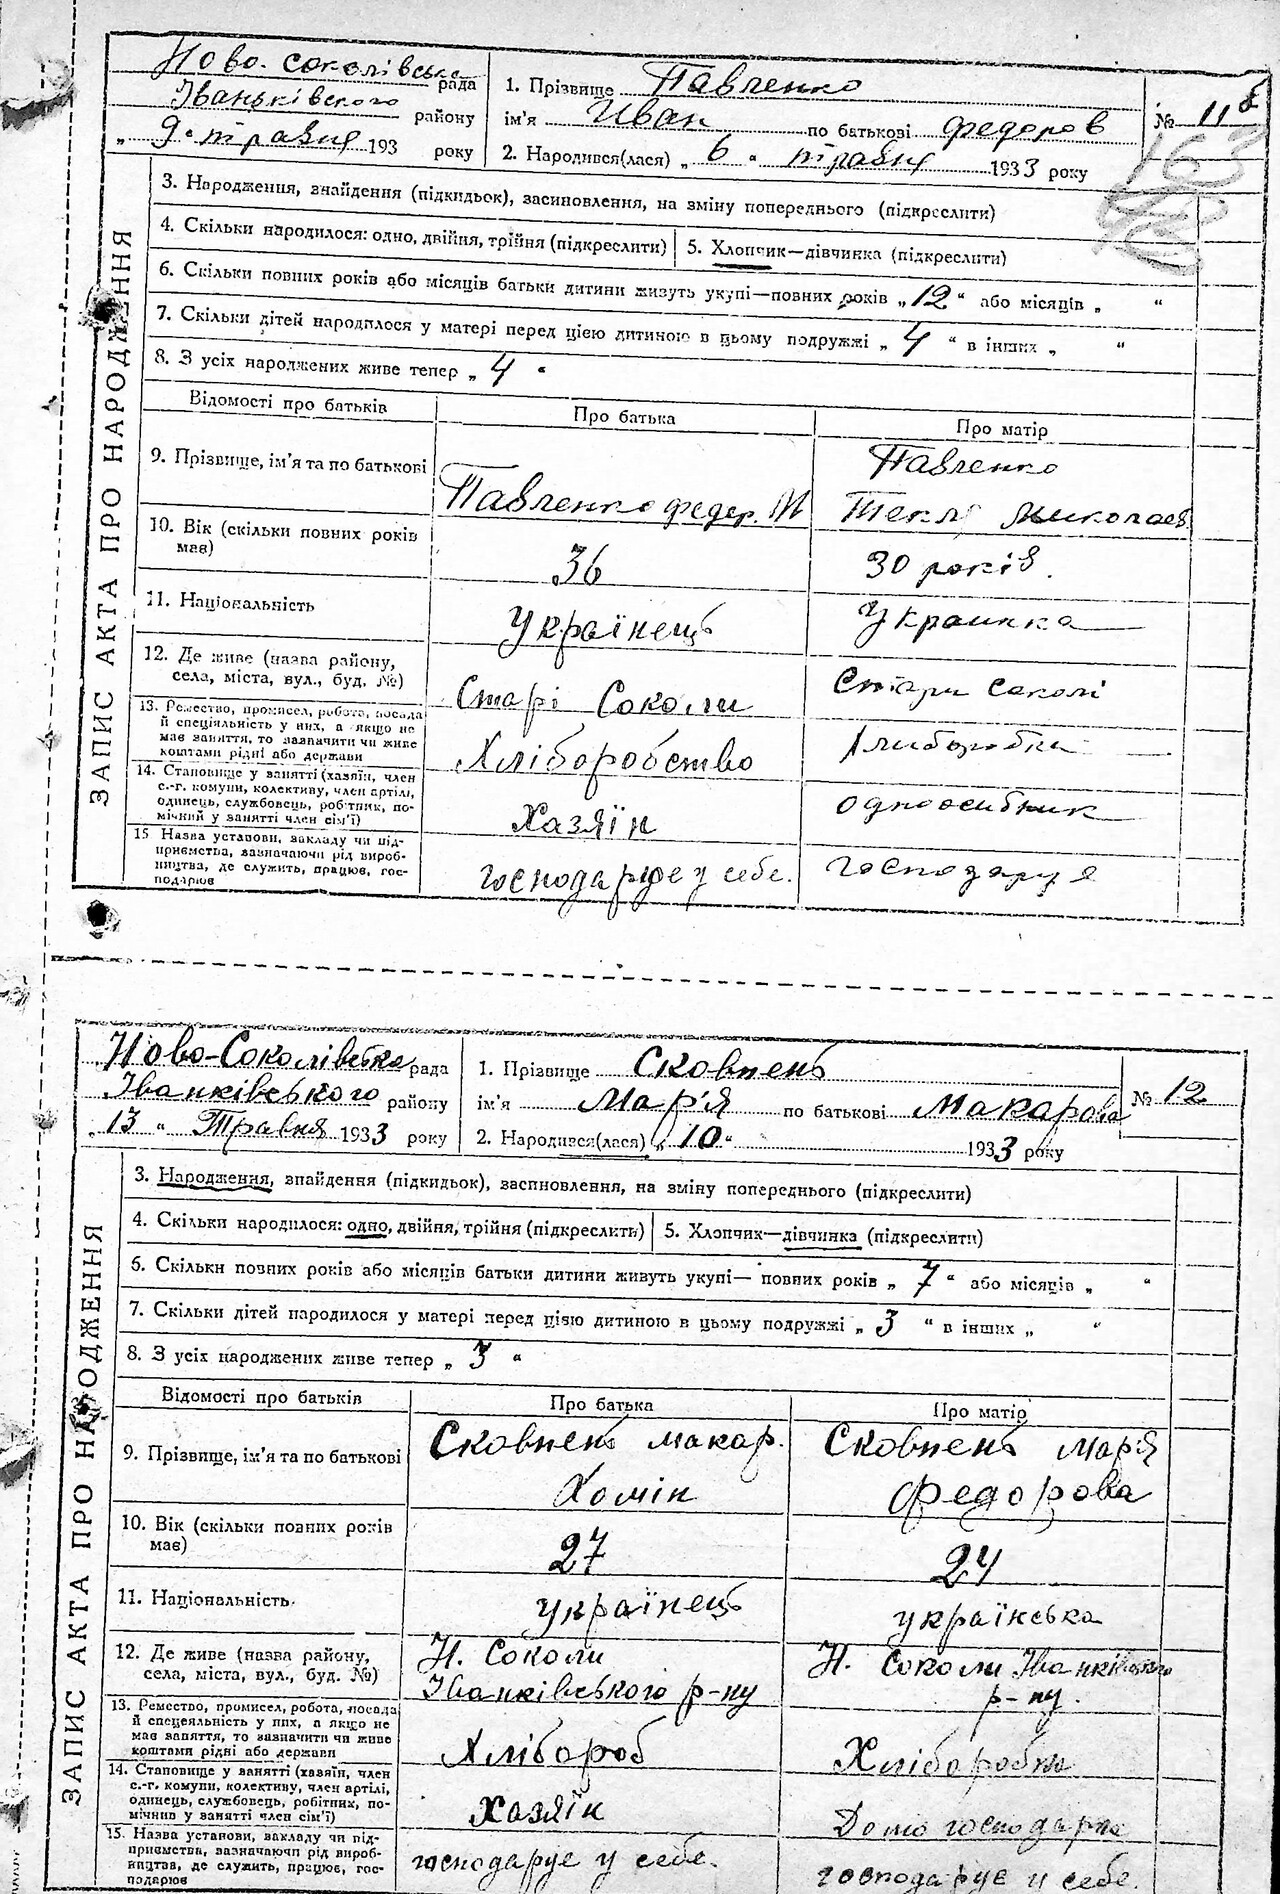 Ново-соколівська рада
Іваньківского району
„ 9 " травня 193 року
1. Прізвище Павленко
ім'я Иван по батькові федоров
2. Народився(лася) „ 6 " травня 1933 року
№ 11
163
ЗАПИС АКТА ПРО НАРОДЖЕННЯ
3. Народження, знайдення (підкидьок), засиновлення, на зміну попереднього (підкреслити)
4. Скільки народилося: одно, двійня, трійня (підкреслити) 5. Хлопчик—дівчинка (підкреслити)
6. Скільки повних років або місяців батьки дитини живуть укупі—повних років „ 12 " або місяців „ "
7. Скільки дітей народилося у матері перед цією дитиною в цьому подружжі „ 4 " в інших „ "
8. З усіх народжених живе тепер „ 4 "
Відомості про батьків Про батька Про матір
9. Прізвище, ім'я та по батькові
Павленко федер. М
Павленко
Текля Миколаев
10. Вік (скільки повних років має)
36
30 років.
11. Національність
Українець
Украинка
12. Де живе (назва району,
села, міста, вул., буд. №)
Старі Соколи
Стари Соколі
13. Ремество, промисел, робота, посада
й спеціяльність у них, а якщо не
має заняття, то зазначити чи живе
коштами рідні або держави
Хліборобство
14. Становище у занятті (хазяїн, член
с.-г. комуни, колективу, член артілі,
одинець, службовець, робітник, по-
мічний у занятті член сім'ї)
Хазяїн
одноосибник
15 Назва установи, закладу чи під-
приємства, зазначаючи рід вироб-
ництва, де служить, працює, гос-
подарює
господарює у себе.
господарує
Ново-Соколівська рада
Іванківського району
„ 13 " Травня 1933 року
1. Прізвище Сковпень
ім'я Мар'я по батькові Макарова
2. Народився(лася) „ 10 " 1933 року
№ 12
ЗАПИС АКТА ПРО НАРОДЖЕННЯ
3. Народження, знайдення (підкидьок), засиновлення, на зміну попереднього (підкреслити)
4. Скільки народилося: одно, двійня, трійня (підкреслити) 5. Хлопчик—дівчинка (підкреслити)
6. Скільки повних років або місяців батьки дитини живуть укупі— повних років „ 7 " або місяців „ "
7. Скільки дітей народилося у матері перед цією дитиною в цьому подружжі „ 3 " в інших „ "
8. З усіх народжених живе тепер „ 3 "
Відомості про батьків Про батька Про матір
9. Прізвище, ім'я та по батькові
Сковпень макар.
Хомін
Сковпень Мар'я
федорова
10. Вік (скільки повних років має)
27
24
11. Національність
українець
українська
12. Де живе (назва району,
села, міста, вул., буд. №)
Н. Соколи
Іванківського р-ну
Н. Соколи Іванківського
р-ну.
13. Ремество, промисел, робота, посада
й спецеяльність у них, а якщо не
має заняття, то зазначити чи живе
коштами рідні або держави
Хлібороб
Хліборобка
14. Становище у занятті (хазяїн, член
с.-г. комуни, колективу, член артілі,
одинець, службовець, робітник, по-
мічний у занятті член сім'ї)
Хазяїн
Домо господарка
15. Назва установи, закладу чи під-
приємства, зазначаючи рід вироб-
ництва, де служить, працює, гос-
подарює
господарує у себе.
господарує у себе.